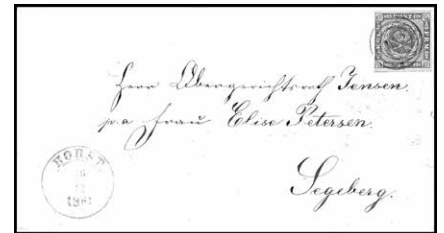 Herr Obergerichtsrath Jensen.
p. a. Frau Elise Petersen.
Segeberg.
HORST